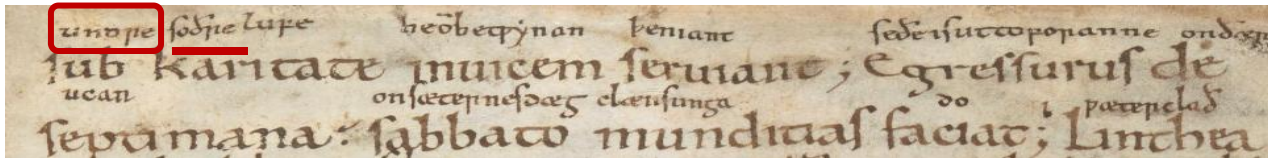 undre soðre lufe heōbetƿynan þeniant seðe isuttoforanne
sub karitate inuicem seruiant; Egressurus de
ucan onsæternesdæg clænsunga do ƿæterclað
septimana: sabbato munditias faciat; Linthea